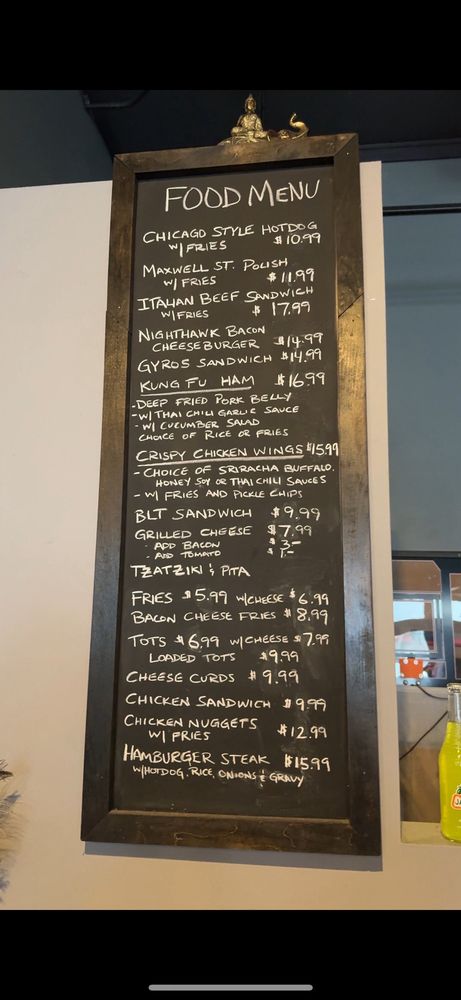 FOOD MENU
CHICAGO STYLE HOTDOG
W/FRIES $10.99
MAXWELL ST. POLISH
W/ FRIES $11.99
ITALIAN BEEF SANDWICH
W/FRIES $ 17.99
NIGHTHAWK BACON
CHEESEBURGER $14.99
GYROS SANDWICH $14.99
KUNG FU HAM $16.99
-DEEP FRIED PORK BELLY
-W/THAI CHILI GARLIC SAUCE
- W/ CUCUMBER SALAD
CHOICE OF RICE OR FRIES
CRISPY CHICKEN WINGS $15.99
- CHOICE OF SRIRACHA BUFFALO.
HONEY SOY OR THAI CHILI SAUCES
- W/ FRIES AND PICKLE CHIPS
BLT SANDWICH $9.99
GRILLED CHEESE $7.99
- ADD BACON $3-
- ADD TOMATO $1-
TZATZIKI & PITA
FRIES $5.99 W/CHEESE $6.99
BACON CHEESE FRIES $8.99
TOTS $6.99 W/CHEESE $7.99
LOADED TOTS $9.99
CHEESE CURDS $9.99
CHICKEN SANDWICH $9.99
CHICKEN NUGGETS
W/ FRIES $12.99
HAMBURGER STEAK $15.99
W/HOTDOG, RICE, ONIONS & GRAVY